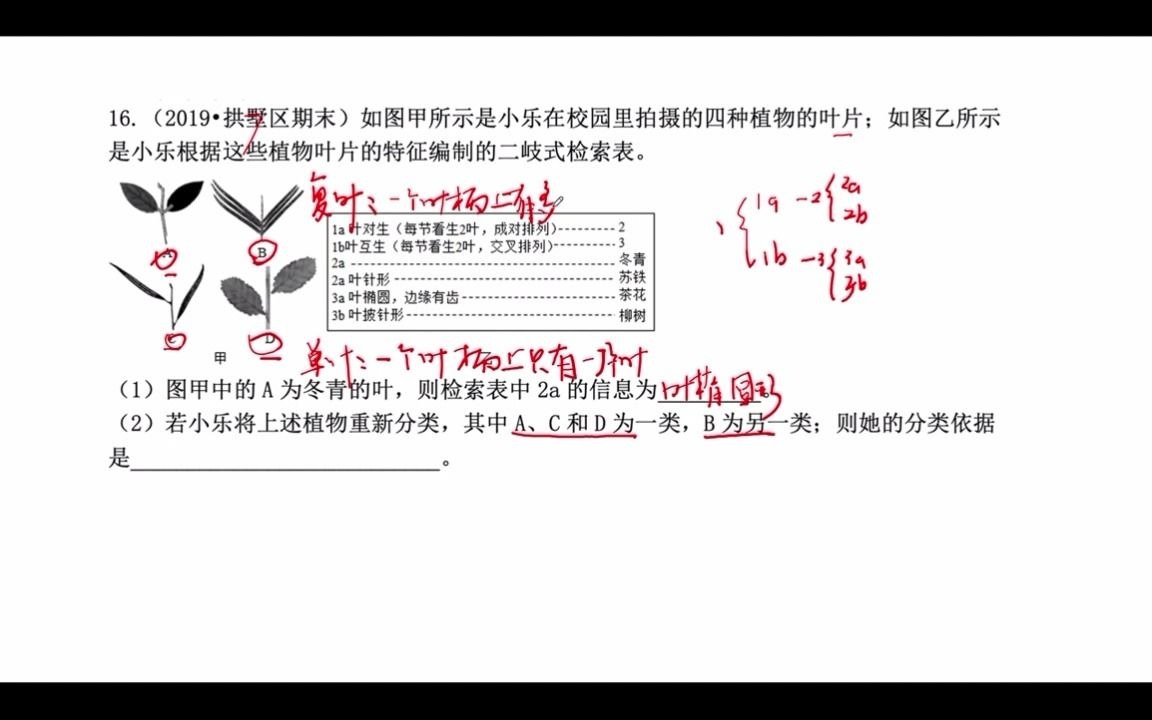 16.（2019•拱墅区期末）如图甲所示是小乐在校园里拍摄的四种植物的叶片；如图乙所示
是小乐根据这些植物叶片的特征编制的二岐式检索表。
复叶：一个叶柄上有多
A
B
C
D
甲
1a 叶对生（每节看生2叶，成对排列）---------2
1b叶互生（每节看生2叶，交叉排列）---------3
2a ---------冬青
2a 叶针形 ---------苏铁
3a 叶椭圆，边缘有齿---------茶花
3b 叶披针形---------柳树
1a -2 2a
2b
1b -3 3a
3b
单叶：一个叶柄上只有一片叶
（1）图甲中的 A 为冬青的叶，则检索表中 2a 的信息为 叶椭圆形 。
（2）若小乐将上述植物重新分类，其中 A、C 和 D 为一类，B 为另一类；则她的分类依据
是____________________________。